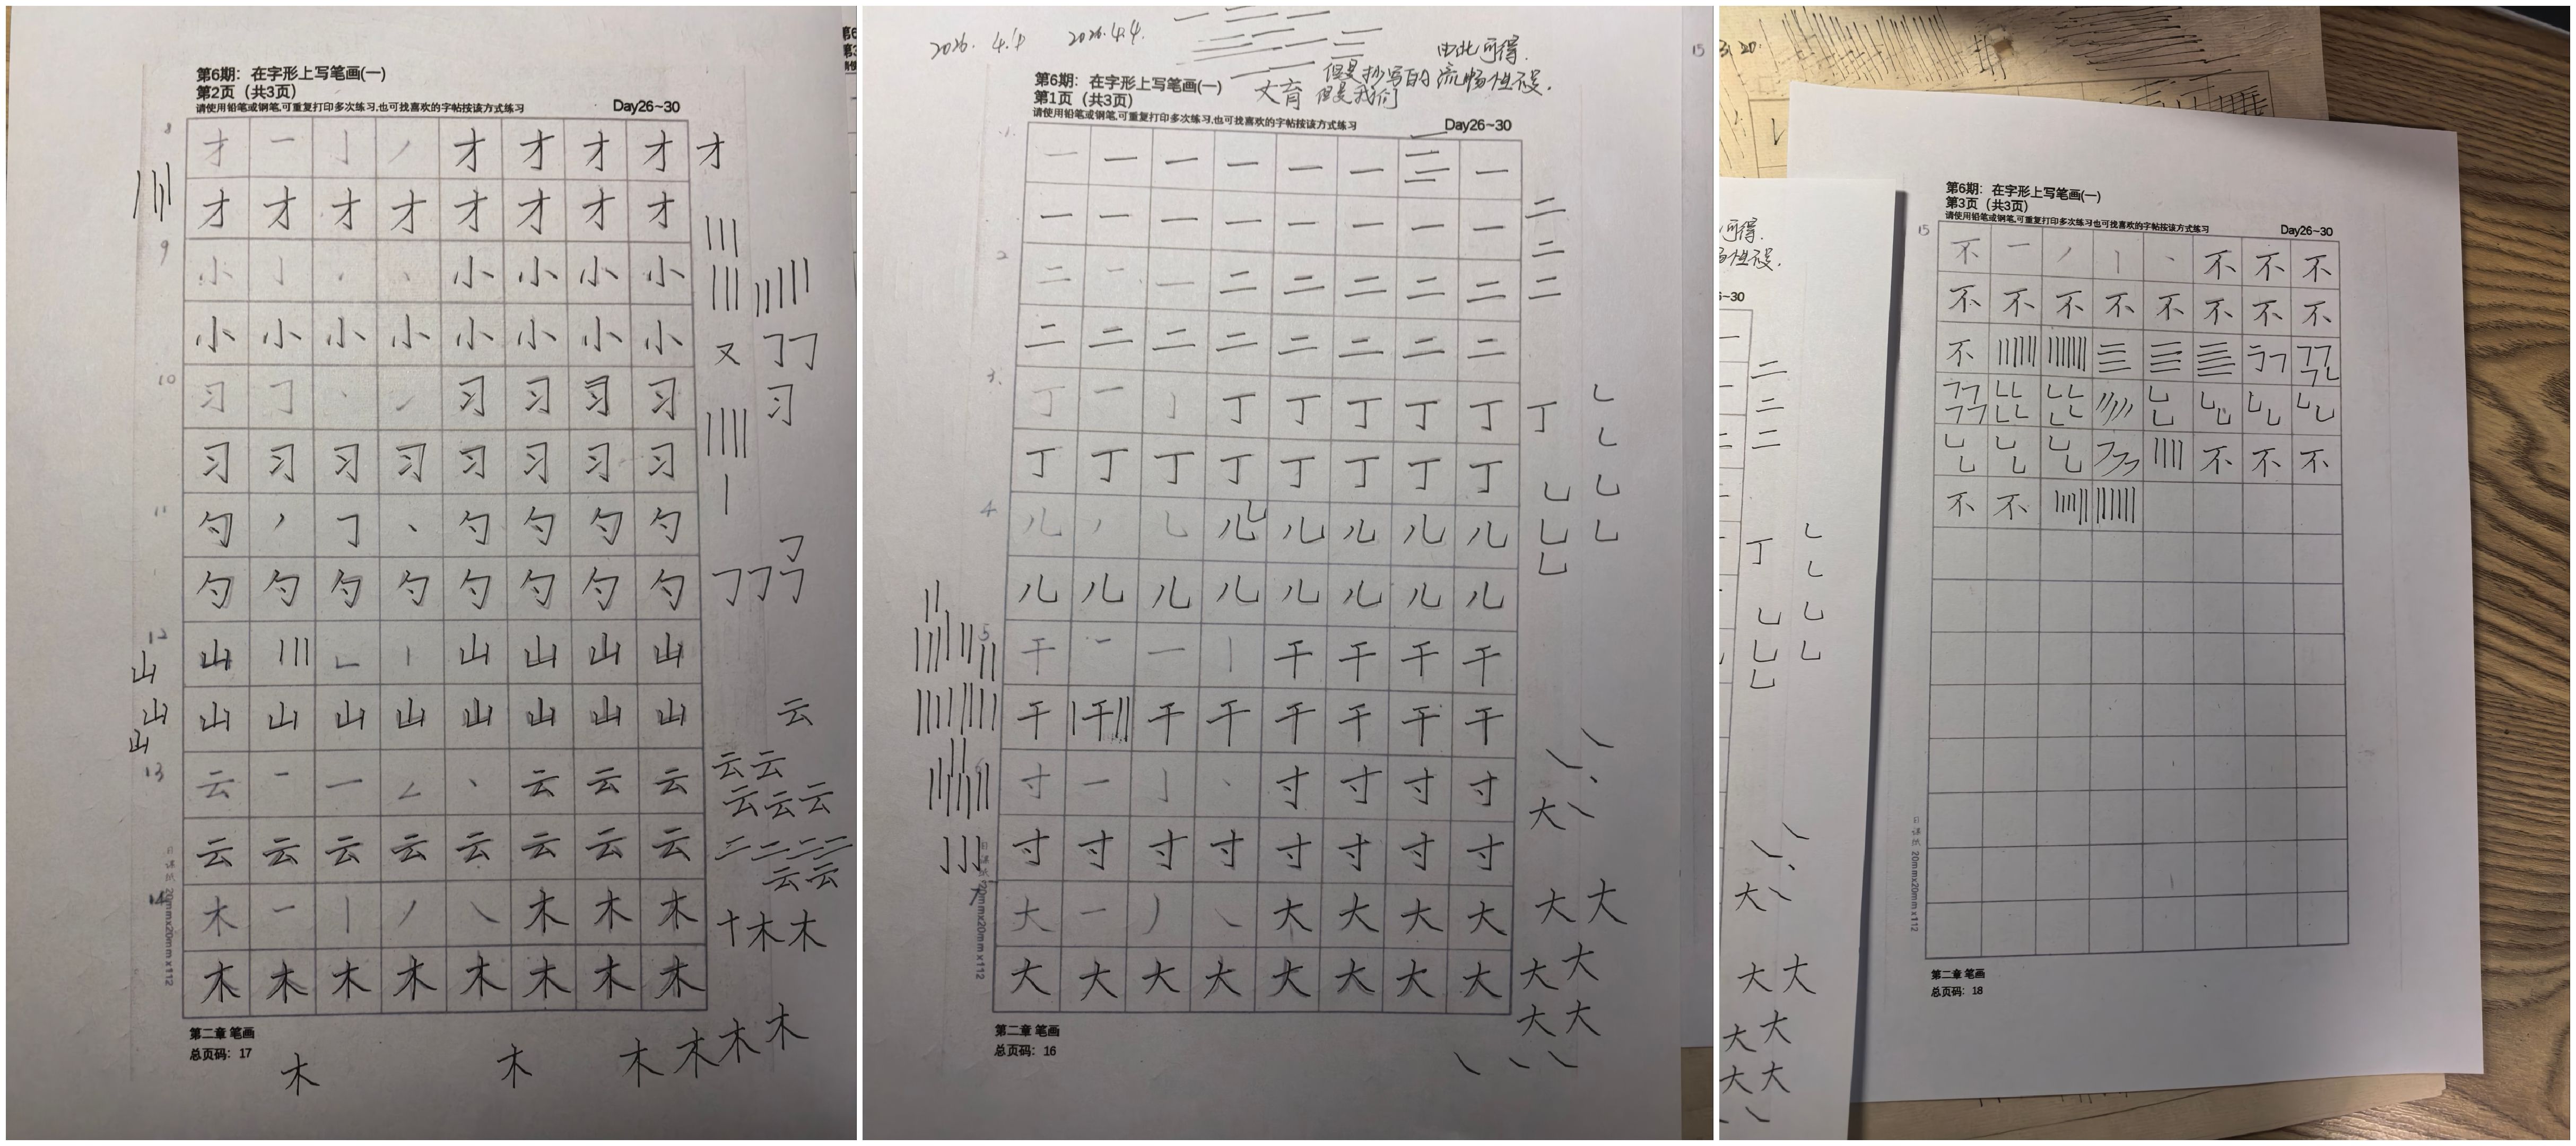 第6期：在字形上写笔画(一)
第2页（共3页）
请使用铅笔或钢笔,可重复打印多次练习,也可找喜欢的字帖按该方式练习 Day26~30
8 才 一 亅 丿 才 才 才 才 才
才 才 才 才 才 才 才 才
9 小 亅 小 小 小 小
小 小 小 小 小 小 小 小 又
10 习 习 习 习 习 习
习 习 习 习 习 习 习 习
11 勺 丿 勺 勺 勺 勺
勺 勺 勺 勺 勺 勺 勺 勺
12 山 山 山 山 山 山
山 山 山 山 山 山 山 山 山 云
山
13 云 一 一 云 云 云 云 云
云 云 云
云 云 云 云 云 云 云 云
云 云
14 木 一 丨 丿 木 木 木 十 木 木
木 木 木 木 木 木 木 木
日课纸 20mmx20mmx112
第二章 笔画
总页码：17
木 木 木 木 木 木
2026. 4.4 2026.4.4.
由此可得.
但是抄写的流畅性没.
文育 但是我们
第6期：在字形上写笔画(一)
第1页（共3页）
请使用铅笔或钢笔,可重复打印多次练习,也可找喜欢的字帖按该方式练习 Day26~30
1. 一 一 一 一 一 一 三 一
一 一 一 一 一 一 一 一 二
二
2 二 一 一 二 二 二 二 二 二
二 二 二 二 二 二 二 二
3. 丁 一 亅 丁 丁 丁 丁 丁 丁
丁 丁 丁 丁 丁 丁 丁 丁
4 儿 丿 乚 儿 儿 儿 儿 儿
儿 儿 儿 儿 儿 儿 儿 儿
5 干 一 一 丨 干 干 干 干
干 干 干 干 干 干 干 干
6 寸 一 亅 寸 寸 寸 寸 大
寸 寸 寸 寸 寸 寸 寸 寸
7 大 一 丿 大 大 大 大 大 大
大 大 大 大 大 大 大 大 大 大
大 大
日课纸 20mmx20mmx112
第二章 笔画
总页码：16
15
3.20.
第6期：在字形上写笔画(一)
第3页（共3页）
请使用铅笔或钢笔,可重复打印多次练习也可找喜欢的字帖按该方式练习 Day26~30
15 不 一 丿 丨 丶 不 不 不
不 不 不 不 不 不 不 不
不
不 不 不
不 不
日课纸 20mmx20mmx112
第二章 笔画
总页码：18
可得.
性没.
~30
二
二
二
丁
大
大 大
大 大
大 大